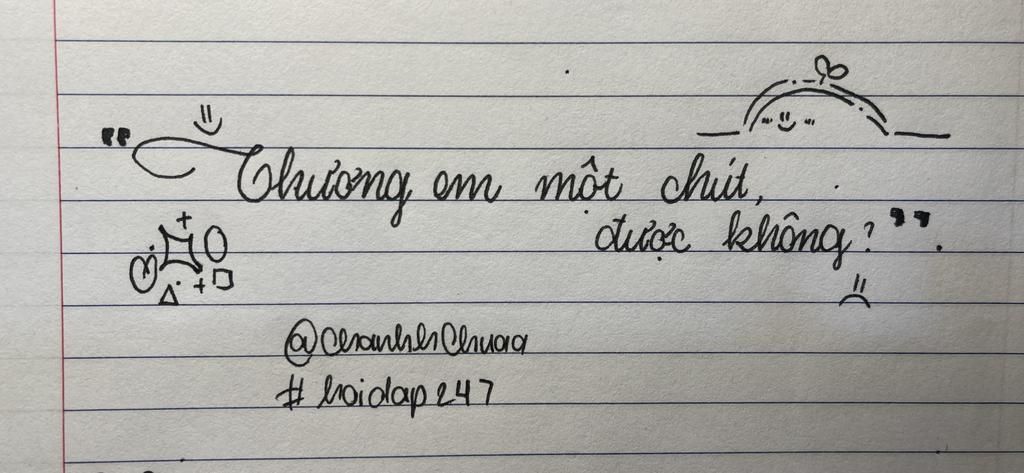 "Thương em một chút,
được không?".
@ChanhhChuaa
# hoidap247